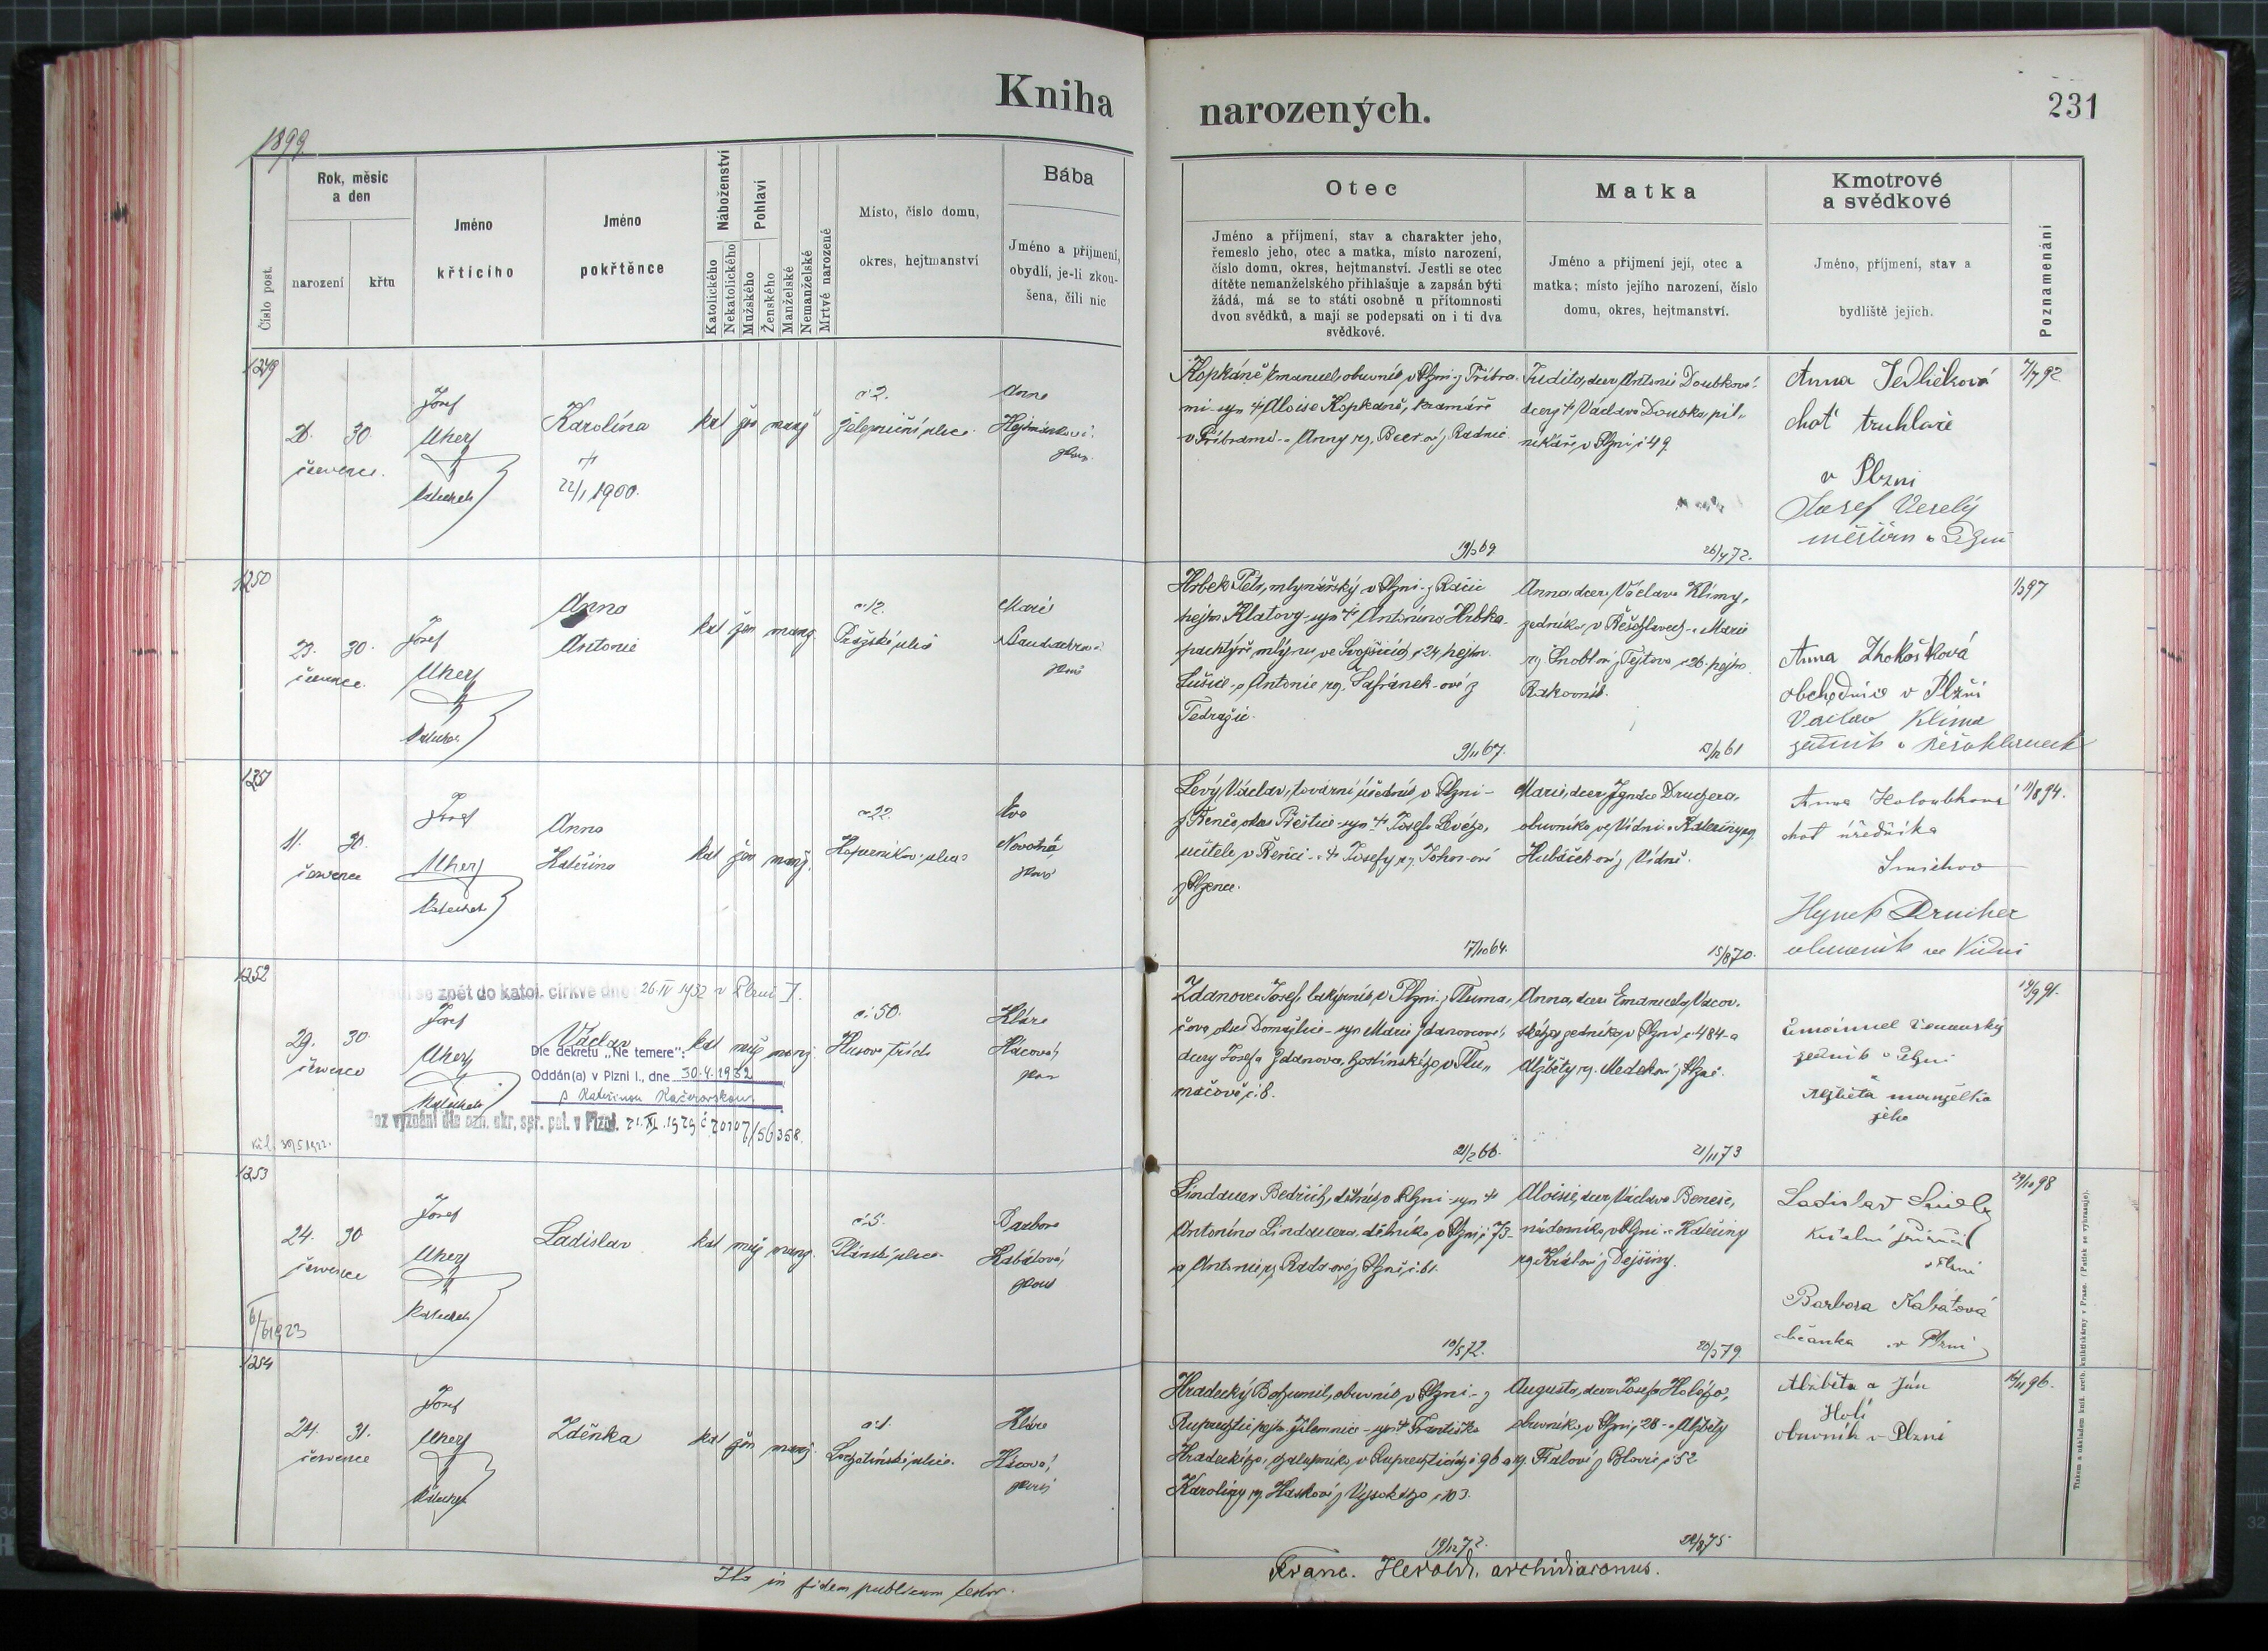 Kniha
narozených.
231
1899
Číslo post.
Rok, měsíc
a den
narození
křtu
Jméno
křticího
Jméno
pokřtěnce
Náboženství
Katolického
Nekatolického
Pohlaví
Mužského
Ženského
Manželské
Nemanželské
Mrtvě narozené
Místo, číslo domu,
okres, hejtmanství
Bába
Jméno a příjmení,
obydlí, je-li zkou-
šena, čili nic
Otec
Jméno a příjmení, stav a charakter jeho,
řemeslo jeho, otec a matka, místo narození,
číslo domu, okres, hejtmanství. Jestli se otec
dítěte nemanželského přihlašuje a zapsán býti
žádá, má se to státi osobně u přítomnosti
dvou svědků, a mají se podepsati on i ti dva
svědkové.
Matka
Jméno a příjmení její, otec a
matka; místo jejího narození, číslo
domu, okres, hejtmanství.
Kmotrové
a svědkové
Jméno, příjmení, stav a
bydliště jejich.
Poznamenání
1249
26. 30.
července.
Josef
Uher
Katecheta
Karolína
†
22/1 1900.
kat žen manž
č 2.
Železniční ulice.
Anna
Kopkáně Emanuel, obuvník v Plzni z Příbra-
mi syn † Aloise Kopkáně, kramáře
v Příbrami a Anny roz. Radnic
19/3 69
Judita, dcera Antonie Doubkové
dcery † Václava Doubka, pil-
níkáře v Plzni č 49
26/4 72.
Anna Jedličková
choť truhláře
v Plzni
Josef Veselý
měšťan v Plzni
7/7 92.
1250
23. 30.
července.
Josef
Uher
Katecheta
Anna
Antonie
kat žen manž.
č 12.
Pražská ulice
Marie
Hrbek Petr, mlynářský v Plzni z
hejtm Klatovy syn † Antonína Hrbka
pachtýře mlýna ve Svojšicích č 24 hejtm.
Sušice a Antonie roz. Šafránek-ové z
Tedražic.
9/11 67.
Anna dcera Václava Klímy,
zedníka v Řešohlavech a Marie
roz. Šnoblov z Tejtova č 26. hejtm.
Rakovník.
Anna
obchodnice v Plzni
Václav Klíma
zedník v Řešohlavech
1/3 97
1251
11. 30.
července
Josef
Uher
Katecheta
Anna
Kateřina
kat žen manž.
č 22.
Koperníkova ulice
Eva
Novotná
Levý Václav, tovární úředník v Plzni
z Řenče, okres Přeštice syn † Josefa Levého,
učitele v Řenči a † Josefy roz John-ové
z Plzence.
17/10 64.
Marie, dcera Ignáce Druchera,
obuvníka ve Vídni a Kateřiny roz.
Hubáček-ové z Vídně.
15/8 70.
Anna Holoubková
choť úředníka
Smíchov
Hynek Drucher
obuvník ve Vídni
11/8 94.
1252
se zpět do katol. církve dne 26 IV 1932 v Plzni I.
29. 30.
července
Josef
Uher
Katecheta
Václav
Dle dekretu „Ne temere":
Oddán(a) v Plzni I., dne 30.4.1932
s Kateřinou Kačerovskou
Bez vyznání dle ozn. okr. spr. pol. v Plzni. 21. XI. 1929 č 20107/56358.
30/5 1922.
kat muž manž
č 50.
Husova třída
Klára
Hácová,
Zdanovec Josef, lakýrník v Plzni z Tluma-
čova, okres Domažlice syn Marie Zdanovcové,
dcery Josefa Zdanovce, hostinského v Tlu-
mačově, č. 8.
21/2 66.
Anna, dcera Emanuela Vacov-
ského zedníka v Plzni č 484 a
Alžběty roz. Medekové z Plzně.
21/11 73
Emanuel
zedník v Plzni
Alžběta manželka
jeho
19/9 91.
1253
24. 30
července
6/6 1923
Josef
Uher
Katecheta
Ladislav
kat muž manž.
č 5.
Plánská ulice.
Barbora
Kabátová,
Lindauer Bedřich, dělník v Plzni syn †
Antonína Lindauera dělníka v Plzni č 73
a Antonie roz. Rada-ové z Plzně č. 61.
10/5 72.
Aloisie, dcera Václava Beneše,
nádeníka v Plzni a Kateřiny
roz. Králové z Dejšiny.
20/3 79.
Ladislav
v Plzni
Barbora Kabátová
občanka v Plzni
29/10 98
1254
24. 31.
července
Josef
Uher
Katecheta
Zděnka
kat žen manž.
č 1.
Lochotínská ulice.
Klára
Hácová,
Hradecký Bohumil, obuvník v Plzni z
Ruprechtic hejtm. Jilemnice syn † Františka
Hradeckého, chalupníka v Ruprechticích č 96 a
Karolíny roz. Haskové z Vysokého č 103.
19/12 72.
Augusta, dcera Josefa Holého,
obuvníka v Plzni, 28 a Alžběty
roz. Fialové z Blovic č 52
Alžběta a Jan
Holí
obuvník v Plzni
16/11 96.
Ita in fidem publicam testor.
Franc. Herold, archidiaconus.